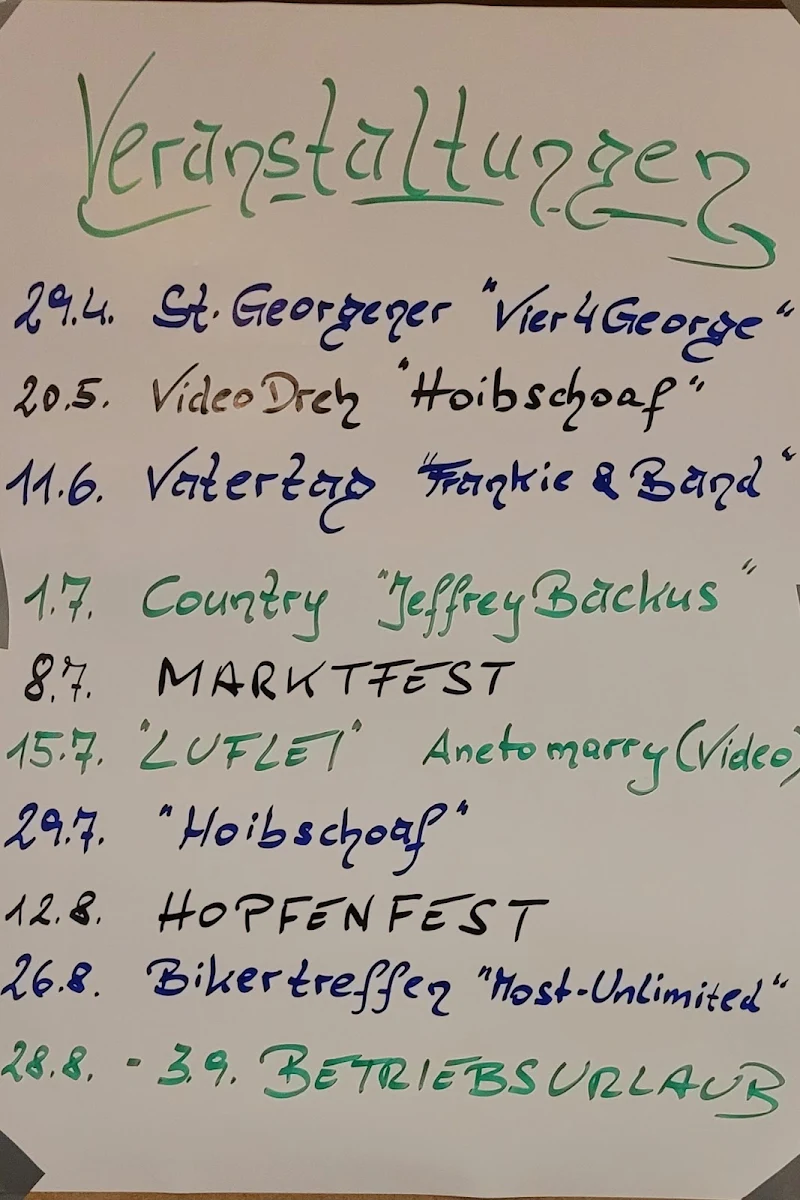 Veranstaltungen
29.4. St. Georgener "Vier4George"
20.5. VideoDreh "Hoibschoaf"
11.6. Vatertag "Frankie & Band"
1.7. Country "Jeffrey Backus"
8.7. MARKTFEST
15.7. "LUFLEI" Anetomarry (Video)
29.7. "Hoibschoaf"
12.8. HOPFENFEST
26.8. Bikertreffen "Most-Unlimited"
28.8. - 3.9. BETRIEBSURLAUB